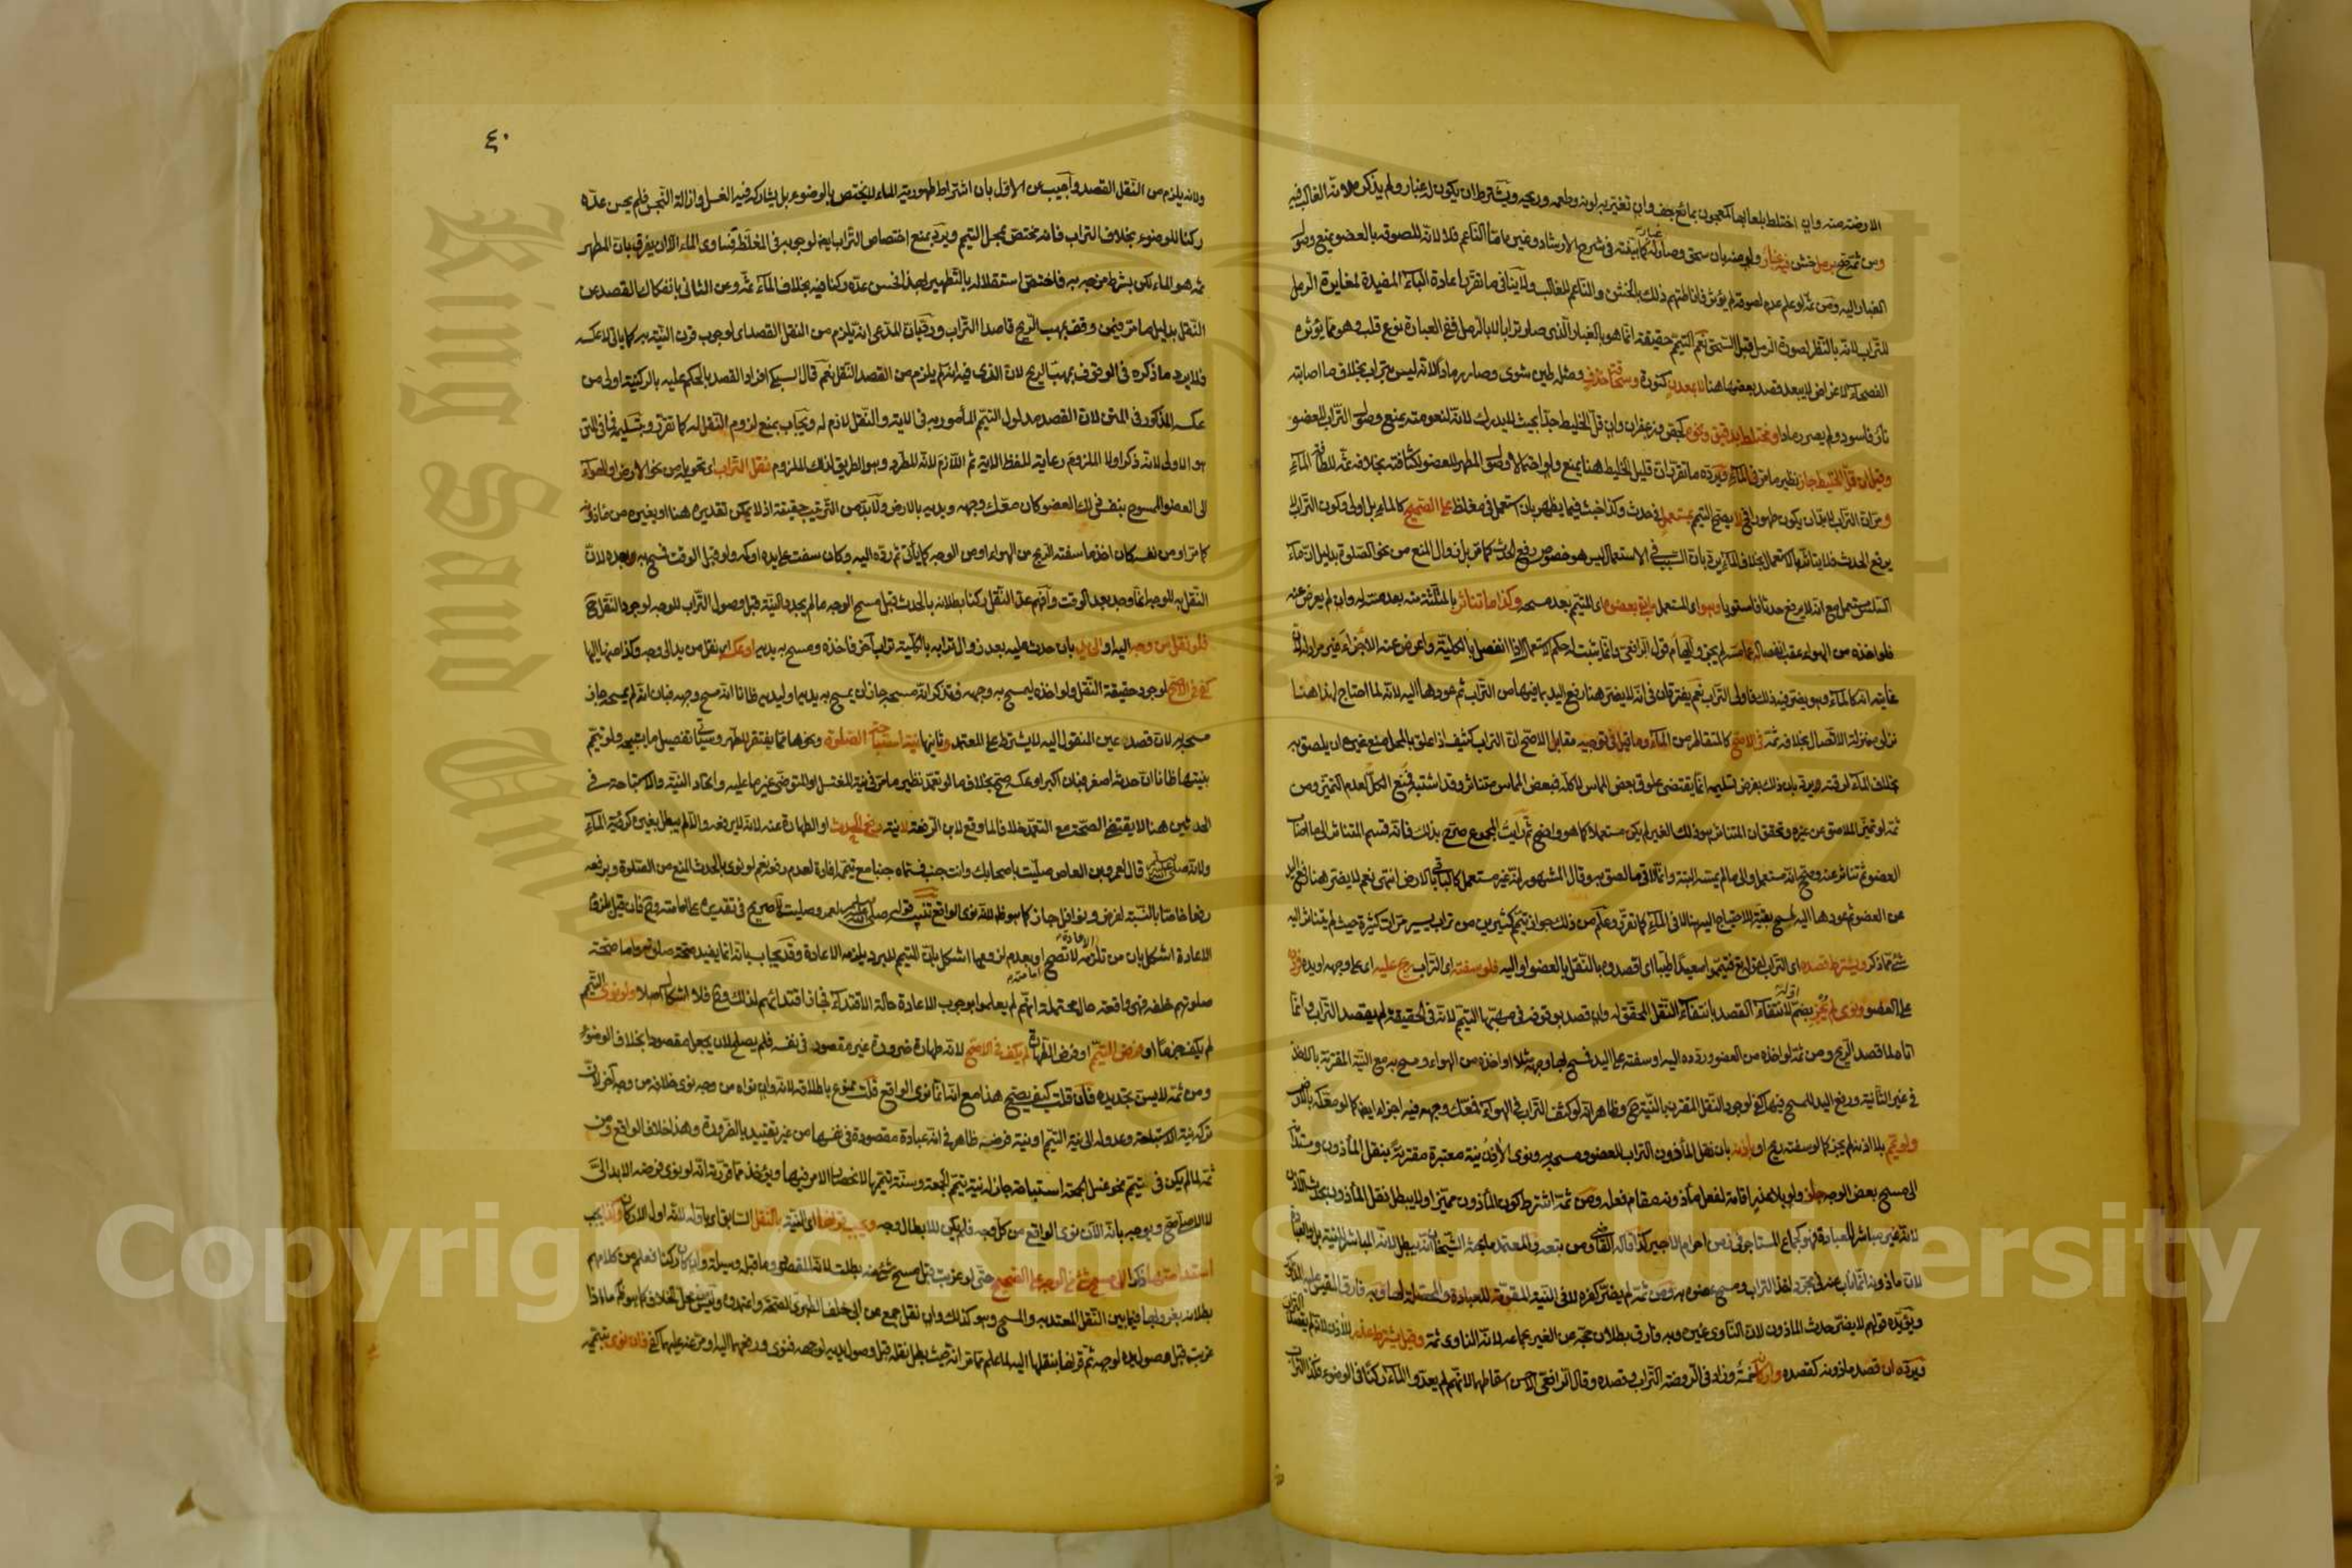 الارضة منه وان اختلط بلعابها كمعجون بمائع جف وان تغير به لونه وطعمه وريحه ويشترط ان يكون له غبار ولم يذكره لانه الغالب فيه
ومن ثمة صح برمل خشن فيه غبار ولو منه بان سحق وصار له غبار كما بينته في شرح الارشاد وغيره اما الناعم فلا لانه للصوقه بالعضو يمنع وصول
الغبار اليه ومن ثمة لو علم عدم لصوقه لم يؤثر فاناطتهم ذلك بالخشن والناعم للغالب ولا ينافي ما تقرر اعادة الباء المفيدة لمغايرة الرمل
للتراب لانه بالنظر لصورة الرمل قبل السحق نعم التيمم حقيقة انما هو بالغبار الذي صار ترابا لا بالرمل ففي العبارة نوع قلب وهو مما يؤثره
الفصحاء لاغراض لا يبعد قصد بعضها هنا لا بمعدن كنورة وسحاقة خزف ومثله طين شوى وصار رمادا لانه ليس بتراب بخلاف ما اصابته
نار فاسود ولم يصر رمادا ومختلط بدقيق ونحوه كجص وزعفران وان قل الخليط جدا بحيث لا يدرك لانه لنعومته يمنع وصول التراب للعضو
وقيل ان قل الخليط جاز نظير ما مر في الماء ويرده ما تقرر ان قليل الخليط هنا يمنع ولو احتمالا وصول المطهر للعضو لكثافته بخلافه ثمة للطافة الماء
ومر ان التراب لا بد ان يكون طهورا فلا يصح التيمم بمستعمل في حدث وكذا خبث فيما يظهر بان استعمل في مغلظ على الصحيح كالماء بل اولى وكون التراب لا
يرفع الحدث فلا يتأثر بالاستعمال بخلاف الماء يرد بان السبب في الاستعمال ليس هو خصوص رفع الحدث كما مر بل زوال المنع من نحو الصلوة بدليل ان ماء
السلس مستعمل مع انه لا يرفع حدثا فاستويا وهو اى المستعمل ما بقى بعضوه اى المتيمم بعد مسحه وكذا ما تناثر بالمثلثة منه بعد مسته له وان لم يعرض عنه
فلو اخذه من الهواء عقب انفصاله عما مسه لم يجز وايهام قول الرافعى وانما يثبت له حكم الاستعمال اذا انفصل بالكلية واعرض عنه الاجزاء غير مراد لان
غايته انه كالماء وهو يضر فيه ذلك فاولى التراب نعم يفترقان في انه لا يضر هنا رفع اليد بما فيها من التراب ثم عودها اليه لانه لما احتاج لهذا هنا
نزلوه منزلة الاتصال بخلافه ثمة في الاصح كالمتقاطر من الماء وما قيل في توجيه مقابل الاصح ان التراب كثيف اذا علق بالمحل منع غيره ان يلصق به
بخلاف الماء لرقته يرد بان ذلك بفرض تسليمه انما يقتضى علوق بعض المماس لا كله فبعض المماس متناثر وقد اشتبه فمنع الكل لعدم التميز ومن
ثمة لو تميز الملاصق عن غيره وتحقق ان المتناثر هو ذلك الغير لم يكن مستعملا كما هو واضح ثم رأيت المجموع صرح بذلك فانه قسم المتناثر الى ما اصاب
العضو ثم تناثر عنه وصحح انه مستعمل والى ما لم يمسه البتة وانما لاقى ما لصق به وقال المشهور انه غير مستعمل كالباقي بالارض انتهى نعم لا يضر هنا رفع اليد
عن العضو ثم عودها اليه لمسح بقيته للاحتياج اليه هنا لا في الماء كما تقرر وعلم من ذلك جواز تيمم كثيرين من تراب يسير مرات كثيرة حيث لم يتناثر اليه
شئ مما ذكر ويشترط قصده اى التراب لقوله تع فتيمموا صعيدا طيبا اى اقصدوه بالنقل بالعضو او اليه فلو سفته اى التراب ريح عليه اى على وجهه او يده فردده
على العضو ونوى لم يجزئ بضم اوله لانتفاء القصد بانتفاء النقل المحقق له وان قصد بوقوفه في مهبها التيمم لانه في الحقيقة لم يقصد التراب وانما
اتاه لما قصد الريح ومن ثمة لو اخذه من العضو ورده اليه او سفته على اليد فمسح بها وجهه مثلا او اخذه من الهواء ومسح به مع النية المقترنة بالاخذ
في غير الثانية ورفع اليد للمسح فيها كفى لوجود النقل المقترن بالنية ح وظاهر انه لو كثف التراب في الهواء فمعك وجهه فيه اجزاه ايضا كما لو معكه بالارض
ولو يمم بلا اذنه لم يجز كما لو سفته ريح او باذنه بان نقل المأذون التراب للعضو ومسح به ونوى الآذن نية معتبرة مقترنة بنقل المأذون ومستدامة
الى مسح بعض الوجه جاز ولو بلا عذر اقامة لفعل مأذونه مقام فعله ومن ثمة اشترط كون المأذون مميزا ولا يبطل نقل المأذون بحدث الآذن
لانه غير مباشر للعبادة فهو كجماع المستاجر في زمن احرام الاجير كذا قاله القاضي ومن تبعه والمعتمد ما بحثه الشيخان انه يبطل لانه المباشر للنية بل والعبادة
لان مأذونه انما ناب عنه في مجرد اخذ التراب ومسح عضوه به ومن ثمة لم يضر كفره لا في النية المقومة للعبادة والمحصلة لها وبه فارق المقيس عليه المذكور
ويؤيده قولهم لا يضر حدث المأذون لان الناوى غيره وبه فارق بطلان حجه من الغير بجماعه لانه الناوى ثمة وقيل يشترط عذر للآذن لانه لم يقصد التراب
ويرده ان قصد مأذونه كقصده واركانه خمسة وزاد في الروضة التراب وقصده وقال الرافعى الاحسن اسقاطهما لانهم لم يعدوا الماء ركنا في الوضوء فكذا التراب
٤٠
ولانه يلزم من النقل القصد واجيب عن الاول بان اشتراط طهورية الماء لا يختص بالوضوء بل يشاركه فيه الغسل وازالة النجس فلم يحسن عده
ركنا للوضوء بخلاف التراب فانه مختص بمحل التيمم ويرد بمنع اختصاص التراب ايضا لوجوبه في المغلظ فساوى الماء الا ان يفرق بان المطهر
ثمة هو الماء لكن بشرط مزجه به فاختص استقلاله بالتطهير بهذا فحسن عده ركنا فيه بخلاف الماء ثمة وعن الثاني بانفكاك القصد عن
النقل بدليل ما مر فيمن وقف بمهب الريح قاصدا التراب ورد بان المدعى انه يلزم من النقل القصد اى لوجوب قرن النية به كما يأتى لا عكسه
فلا يرد ما ذكره في الوقوف بمهب الريح لان الذى فيه انه لم يلزم من القصد النقل نعم قال السبكى افراد القصد بالحكم عليه بالركنية اولى من
عكسه المذكور في المتن لان القصد مدلول التيمم المأمور به في الاية والنقل لازم له ويجاب بمنع لزوم النقل له كما تقرر وبتسليمه فما في المتن
هو الاولى لانه ذكر اولا الملزوم رعاية للفظ الاية ثم اللازم لانه المطرد وهو الطريق لذلك الملزوم نقل التراب اى تحويله من نحو الارض او الهواء
الى العضو الممسوح بنفسه في ذلك العضو كان معك وجهه ويديه بالارض ولا بد من الترتيب حقيقة اذ لا يمكن تقديره هنا او بغيره من مأذونه
كما مر او من نفسه كان اخذ ما سفته الريح من الهواء او من الوجه كما يأتى ثم رده اليه وكان سفت على يده او كمه ولو قبل الوقت فمسح به وجهه لان
النقل به للوجه انما وجد بعد الوقت وافهم عد النقل ركنا بطلانه بالحدث قبل مسح الوجه ما لم يجدد النية قبل وصول التراب للوجه لوجود النقل ح
فلو نقل من وجه اليه او الى يد بان حدث عليه بعد زوال ترابه بالكلية تراب آخر فاخذه ومسح به يديه او عكس اى نقل من يد الى وجه وكذا منها اليها
كفى في الاصح لوجود حقيقة النقل ولو اخذه ليمسح به وجهه فتذكر انه مسحه جاز ان يمسح به يديه او ليديه ظانا انه مسح وجهه فبان انه لم يمسحه جاز
مسحه به لان قصد عين المنقول اليه لا يشترط على المعتمد وثانيها نية استباحة الصلوة ونحوها مما يفتقر لطهر وسيأتى تفصيل ما يستبيحه ولو تيمم
بنيتها ظانا ان حدثه اصغر فبان اكبر او عكسه صح بخلاف ما لو تعمد نظير ما مر في نية المغتسل او المتوضى غير ما عليه واتحاد النية والاستباحة في
الحدثين هنا لا يقتضى الصحة مع التعمد خلافا لما وقع لابن الرفعة لا نية رفع الحدث او الطهارة عنه لانه لا يرفعه والا لم يبطل بغيره كرؤية الماء
ولانه صلى الله عليه وسلم قال لعمرو بن العاص صليت باصحابك وانت جنب فسماه جنبا مع تيممه افادة لعدم رفعه نعم لو نوى بالحدث المنع من الصلوة وبرفعه
رفعا خاصا بالنسبة لفرض ونوافل جاز كما هو ظاهر لانه نوى الواقع تنبيه قوله صلى الله عليه وسلم لعمرو صليت الخ صريح في تقديره على امامته وح فان قيل بلزوم
الاعادة اشكل بان من تلزمه الاعادة لا تصح امامته او بعدم لزومها اشكل بان المتيمم للبرد يلزمه الاعادة وقد يجاب بانه انما يفيد صحة صلاته واما صحة
صلوتهم خلفه فهي واقعة حال محتملة انهم لم يعلموا بوجوب الاعادة حالة الاقتداء فجاز اقتداؤهم لذلك وح فلا اشكال اصلا ولو نوى التيمم
لم يكف جزما او فرض التيمم او فرض الطهارة لم يكف في الاصح لانه طهارة ضرورة غير مقصود في نفسه فلم يصلح لان يجعل مقصودا بخلاف الوضوء
ومن ثمة لا يسن تجديده فان قلت كيف يصح هذا مع انه انما نوى الواقع قلت ممنوع باطلاقه لانه وان نواه من وجه نوى خلافه من وجه آخر لان
تركه نية الاستباحة وعدوله الى نية التيمم او نية فرضيته ظاهر في انه عبادة مقصودة في نفسها من غير تقييد بالضرورة وهذا خلاف الواقع ومن
ثمة لما لم يكن في تيمم نحو غسل الجمعة استباحة جاز له نية تيمم الجمعة وسنة تيممها لانحصار الامر فيها ويؤخذ مما قررته انه لو نوى فرضه الابدالى
لا الاصلى صح ويوجه بانه الآن نوى الواقع من كل وجه فلم يكن للابطال وجه ويجب قرنها اى النية بالنقل السابق اى باوله لانه اول الاركان وكذا يجب
استدامتها ذكرا الى مسح شئ من الوجه على الصحيح حتى لو عزبت قبل مسح شئ منه بطلت لانه المقصود وما قبله وسيلة وان كان ركنا فعلم من كلامهم
بطلانه بعزوبها فيما بين النقل المعتد به والمسح وهو كذلك وان نقل جمع عن ابى خلف الطبرى الصحة واعتمدوه وليس محل خلاف كما هو ظاهر ما اذا
عزبت قبل وصول يده لوجهه ثم قرنها بنقلها اليه لما علم مما مر انه حيث بطل نقله قبل وصول يديه لوجهه فنوى ورفعهما اليه او مرغه عليهما كفى فان نوى بتيممه
Copyright © King Saud University
King Saud University